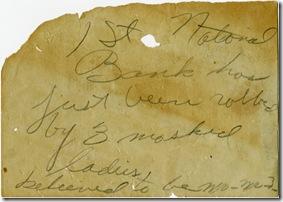 1 St Notoral
Bank has
just been robbed
by 3 masked
ladies,
believed to be